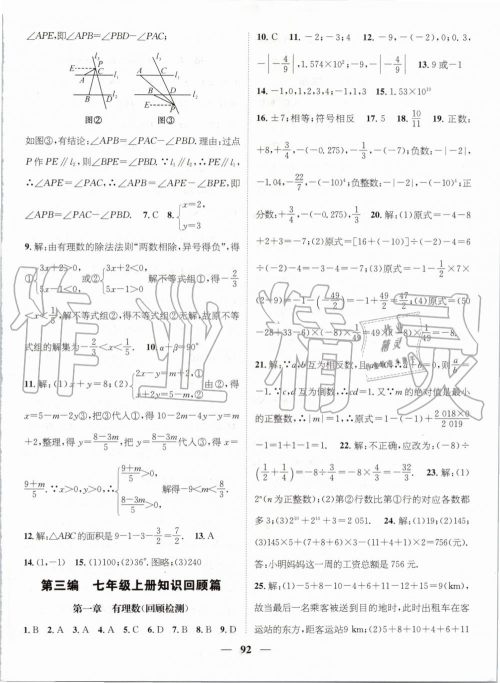 ∠APE,即∠APB=∠PBD-∠PAC;
图② 图③
如图③,有结论:∠APB=∠PAC-∠PBD. 理由:过点
P作PE∥l₁,则∠BPE=∠PBD. ∵l₁∥l₂,∴PE∥l₁,
∴∠APE=∠PAC,∴∠APB=∠APE-∠BPE,即
∠APB=∠PAC-∠PBD. 7. C 8. {x=2, y=3
9. 解:由有理数的除法法则“两数相除,异号得负”,得
①{3x+2>0, 5x-1<0 或②{3x+2<0, 5x-1>0 解不等式组①,得-2/3
<x<1/5,解不等式组②,得不等式组②无解,故原不等
式组的解集为-2/3<x<1/5. 10. α-β=90°
11. 解:(1)x+y=8;(2){2x-y=m+2,① x+2y=5-m.② 由②,得
x=5-m-2y③,把③代人①,得 10-2m-4y-y=m
+2,整理,得 y=(8-3m)/5,把 y=(8-3m)/5 代人③,得 x=
(9+m)/5. ∵x>0,y>0,∴{(9+m)/5>0, (8-3m)/5>0. 解得-9<m<8/3.
12. 解:△ABC的面积是 9-1-3-3/2=7/2. 13. A
14. (1,-1) 15. (1)100;(2)36°. 图略;(3)240
第三编 七年级上册知识回顾篇
第一章 有理数(回顾检测)
1. B 2. A 3. A 4. A 5. C 6. C 7. B 8. A 9. D
10. C 11. -2;-3;4 12. -9,-(-2),0;0.3,
-|-4/9|,1.574×10²;-9,-|-4/9| 13. 9或-1
14. -1,0,1,2,3,4;-1,1,3 15. 1.53×10¹⁰
16. ±7;相等;符号相反 17. 5 18. 10/11 19. 正数:
+8,+3/4,-(-0.275),-(-7);负数:-|-2|,
-1.04,-22/7,-(-10)⁴;负整数:-|-2|,-(-10)⁴;正
分数:+3/4,-(-0.275),1/3 20. 解:(1)原式=-4-8
+2+3=-7;(2)原式=[16+(-10)]÷(-2)-4=6
÷(-2)-4=-3-4=-7;(3)原式=-1-1/2×7×
(2+9)=-1-(-49/2)=-1+49/2=47/2;(4)原式=(50
-28+33-6)×(-8)×1/49=49×(-8)×1/49=-8.
21. 解:∵a,b互为相反数,且a≠0,∴a+b=0,则a/b=
-1. ∵c,d互为倒数,∴cd=1. 又∵m的绝对值是最小
的正整数,∴|m|=1,∴原式=1-(-1)+0/(2 018×0)/2 019
-1=1+1-1=1. 22. 解:不正确,应改为:(-8)÷
(1/2+1/4)=-8÷3/4=-8×4/3=-32/3. 23. 解:(1)
2ⁿ(n为正整数);(2)第②行数比第①行的对应各数都
多3;(3)2¹⁰+2¹⁰+3=2 051. 24. 解:(1)19;(2)145;
(3)145×5+(7+8+6)×3-(11+4+1)×2=756(元).
答:小明妈妈这一周的工资总额是756元.
25. 解:(1)-5+8-10-4+6+11-12+15=9(km),
故当最后一名乘客被送到目的地时,此时出租车在客
运站的东方,距客运站9 km;(2)5+8+10+4+6+11
92
作业精灵